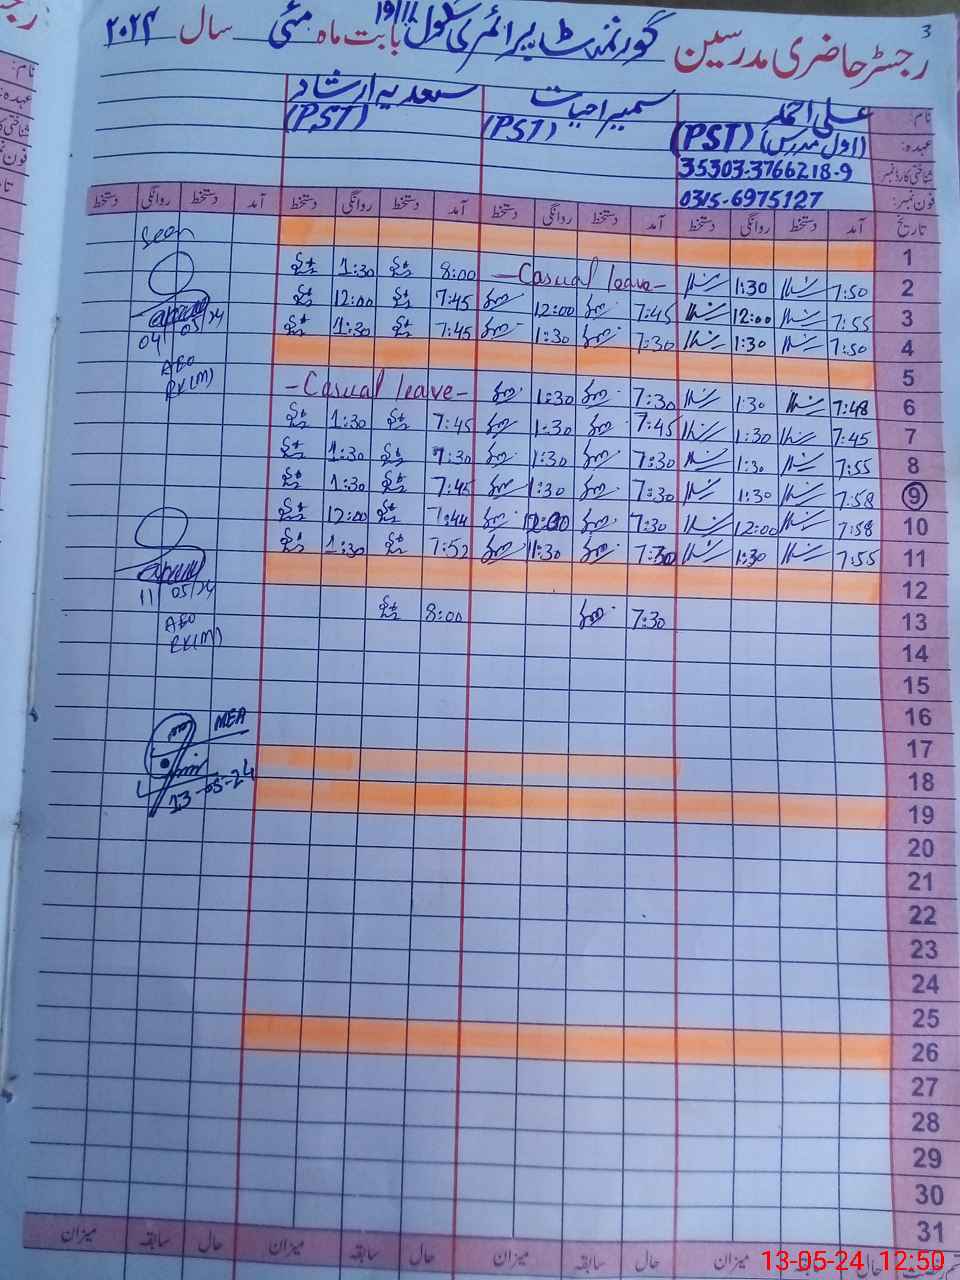 3
رجسٹر حاضری مدرسین گورنمنٹ پرائمری سکول 19/11L بابت ماہ مئی سال ۲۰۲۴
نام: علی احمد سمیرا حیات سعدیہ ارشاد
عہدہ: (اول مدرس) (PST) (PST) (PST)
شناختی کارڈ نمبر 35303-3766218-9
فون نمبر: 0315-6975127
تاریخ آمد دستخط روانگی دستخط آمد دستخط روانگی دستخط آمد دستخط روانگی دستخط آمد دستخط روانگی دستخط
1 Seen
2 7:50 1:30 Casual leave 8:00 1:30
3 7:55 12:00 7:45 12:00 7:45 12:00
4 7:50 1:30 7:30 1:30 7:45 1:30
04 05/24
AEO
5
6 7:48 1:30 7:30 1:30 Casual leave
7 7:45 1:30 7:45 1:30 7:45 1:30
8 7:55 1:30 7:30 1:30 7:30 1:30
9 7:58 1:30 7:30 1:30 7:45 1:30
10 7:58 12:00 7:30 12:00 7:44 12:00
11 7:55 1:30 7:30 1:30 7:52 1:30
12
11 05/24
13 7:30 8:00
AEO
14
15
16
MEA
17
18
13-05-24
19
20
21
22
23
24
25
26
27
28
29
30
31
حال سابقہ میزان حال سابقہ میزان حال سابقہ میزان حال سابقہ میزان
13-05-24 12:50